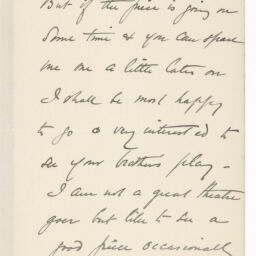 But if the piece is going on
some time & you can spare
me one a little later on
I shall be most happy
to go & very interested to
see your brothers play –
I am not a great theatre
goer but like to see a
good piece occasionally